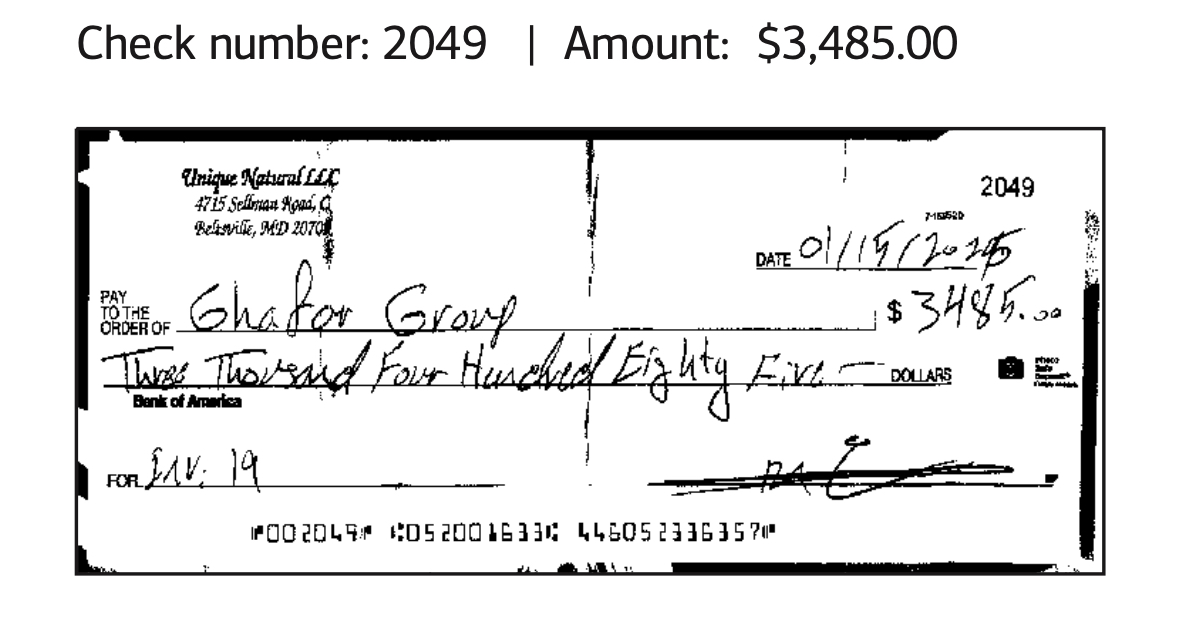 Check number: 2049 | Amount: $3,485.00
Unique Natural LLC
2049
4715 Sellman Road, C
Beltsville, MD 2070
DATE 01/15/2025
PAY TO THE ORDER OF Ghafor Group $ 3485.00
Three Thousand Four Hundred Eighty Five — DOLLARS
Bank of America
FOR Inv: 19
⑈002049⑈ ⑆052001633⑆ 446052336357⑈